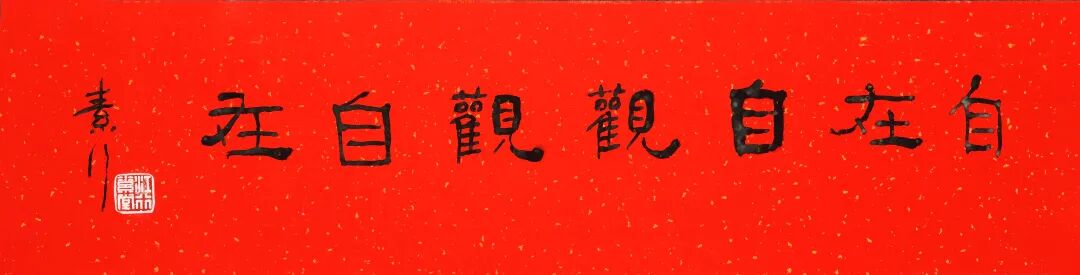 自在自觀觀自在
素